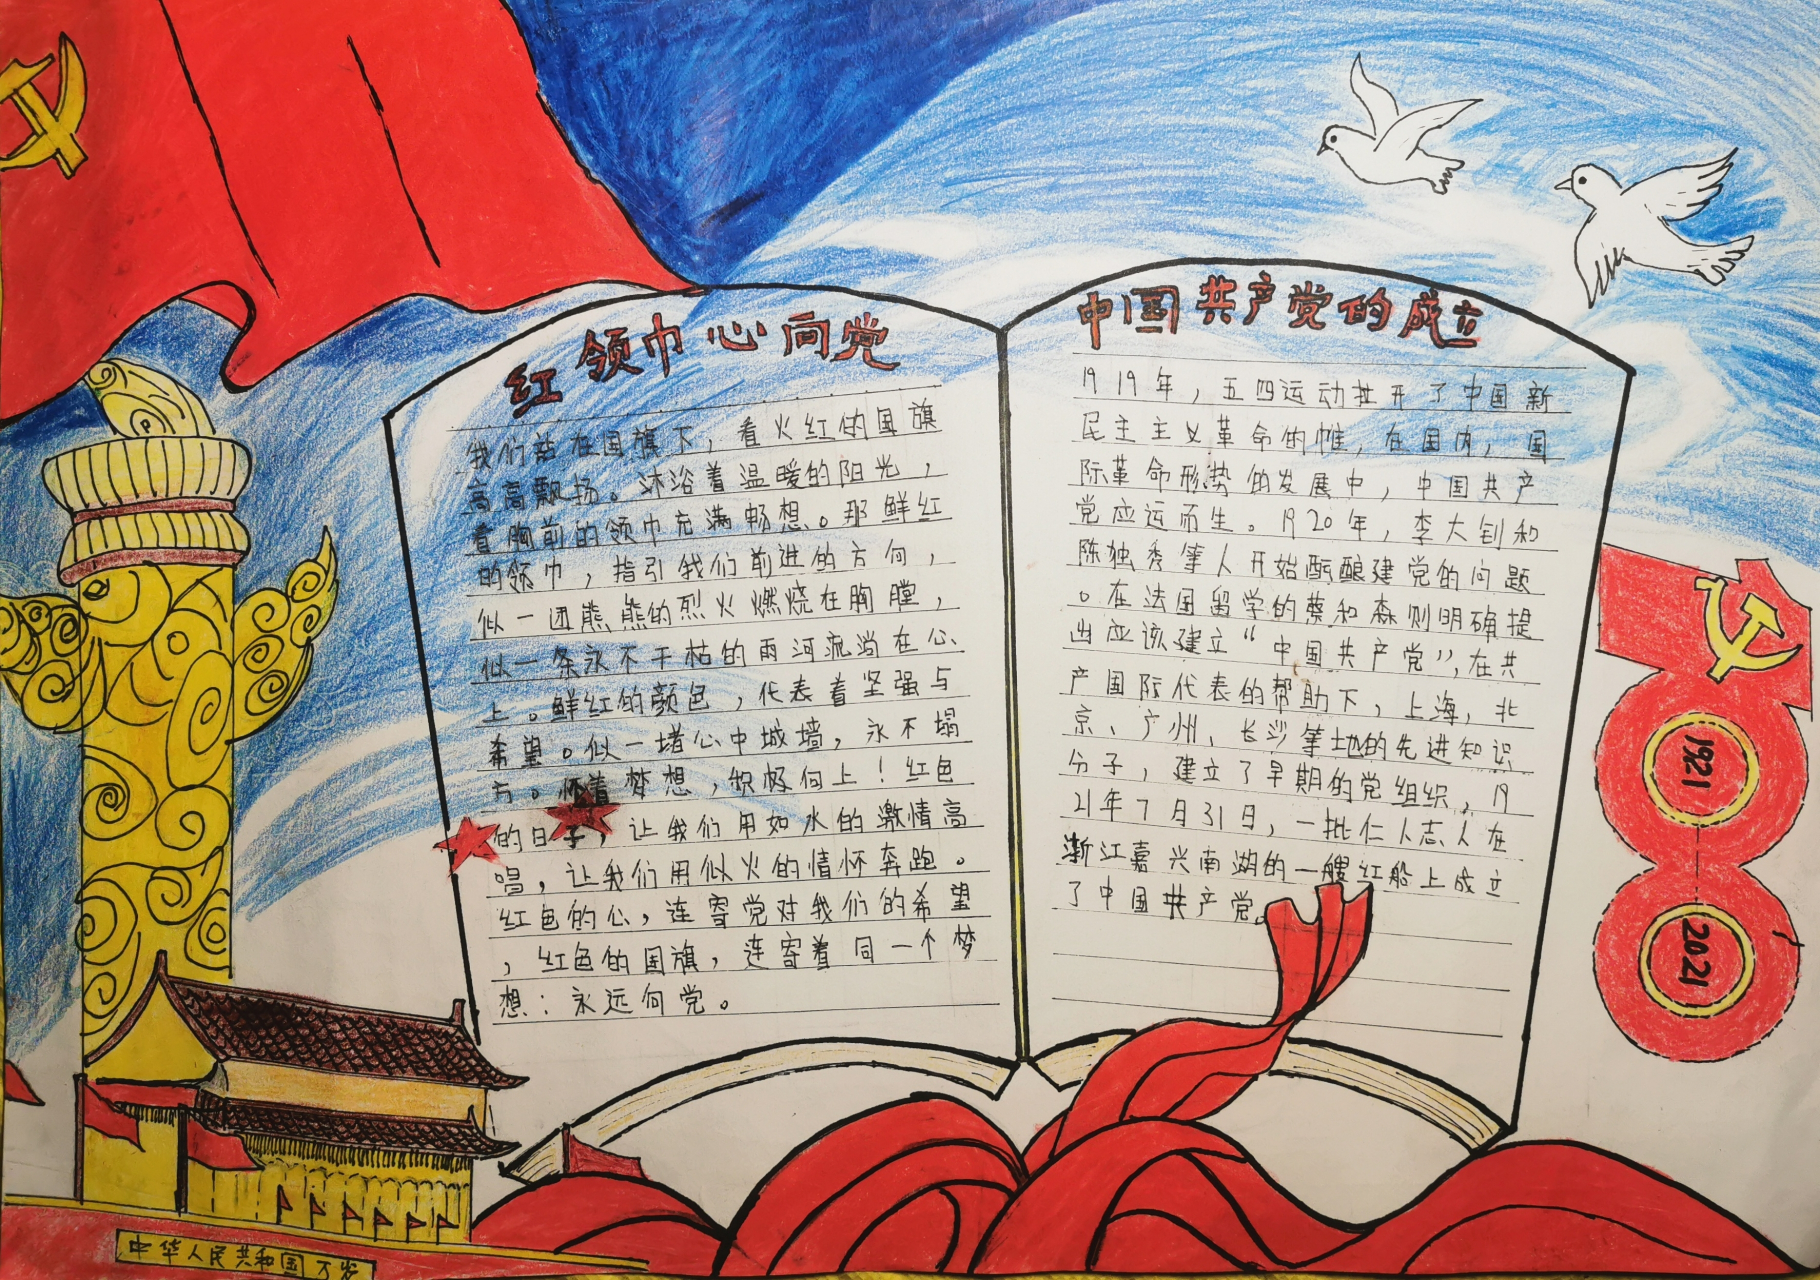 红领巾心向党
我们站在国旗下，看火红的国旗
高高飘扬。沐浴着温暖的阳光，
看胸前的领巾充满畅想。那鲜红
的领巾，指引我们前进的方向，
似一团熊熊的烈火燃烧在胸膛，
似一条永不干枯的雨河流淌在心
上。鲜红的颜色，代表着坚强与
希望。似一堵心中城墙，永不塌
方。怀着梦想，积极向上！红色
的日子，让我们用如水的激情高
唱，让我们用似火的情怀奔跑。
红色的心，连寄党对我们的希望
，红色的国旗，连寄着同一个梦
想：永远向党。
中国共产党的成立
1919年，五四运动拉开了中国新
民主主义革命的帷，在国内，国
际革命形势的发展中，中国共产
党应运而生。1920年，李大钊和
陈独秀等人开始酝酿建党的问题
。在法国留学的蔡和森则明确提
出应该建立“中国共产党”，在共
产国际代表的帮助下，上海，北
京、广州、长沙等地的先进知识
分子，建立了早期的党组织，19
21年7月31日，一批仁人志人在
浙江嘉兴南湖的一艘红船上成立
了中国共产党。
1921
2021
中华人民共和国万岁